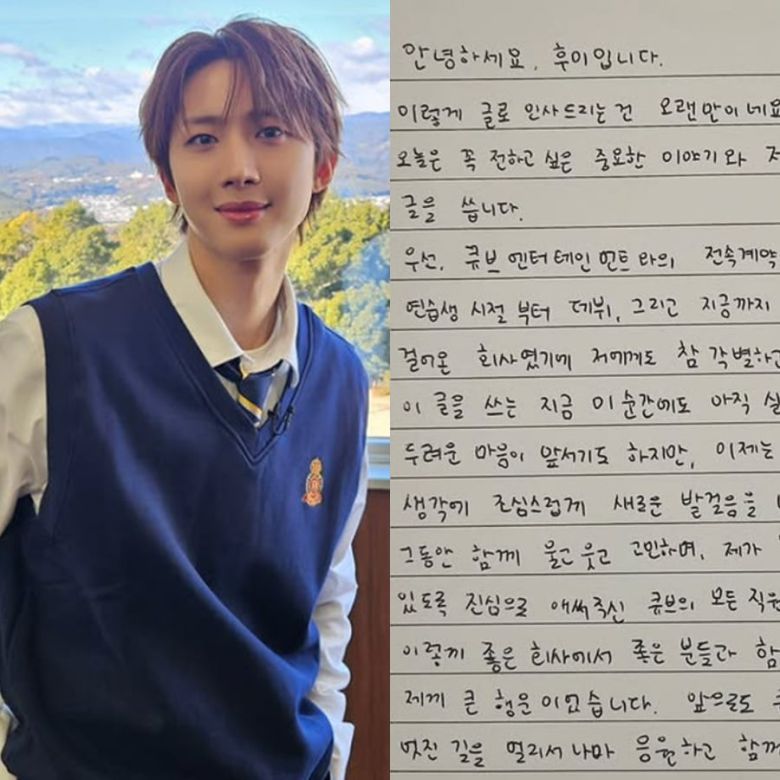 안녕하세요, 후이입니다.
이렇게 글로 인사드리는 건 오랜만이네요
오늘은 꼭 전하고 싶은 중요한 이야기와
글을 씁니다.
우선, 큐브 엔터테인먼트와의 전속계약
연습생 시절부터 데뷔, 그리고 지금까지
걸어온 회사였기에 저에게도 참 각별하고
이 글을 쓰는 지금 이 순간에도 아직
두려운 마음이 앞서기도 하지만, 이제는
생각에 조심스럽게 새로운 발걸음을
그동안 함께 울고 웃고 고민하며, 제가
있도록 진심으로 애써주신 큐브의 모든 직원
이렇게 좋은 회사에서 좋은 분들과 함
제게 큰 행운이었습니다. 앞으로도
멋진 길을 멀리서나마 응원하고 함께